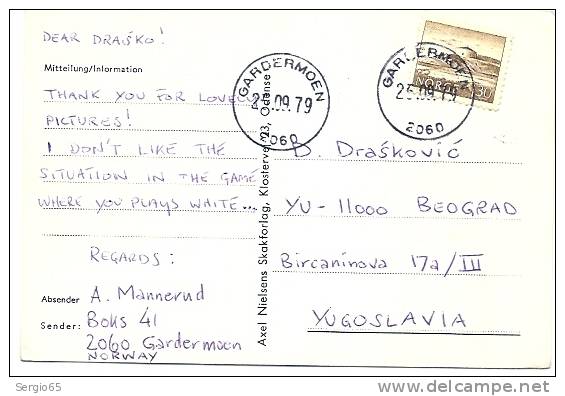 DEAR DRAŠKO!
Mitteilung/Information
THANK YOU FOR LOVELY
PICTURES!
I DON'T LIKE THE
SITUATION IN THE GAME
WHERE YOU PLAYS WHITE...
REGARDS:
Absender A. Mannerud
Sender: Boks 41
2060 Gardermoen
NORWAY
Axel Nielsens Skakforlag, Klostervej 23, Odense
GARDERMOEN
25.09.79
2060
GARDERMOEN
25.09.79
2060
NORGE
D. Drašković
YU-11000 BEOGRAD
Bircaninova 17a/III
YUGOSLAVIA
Sergio65
delcampe.net